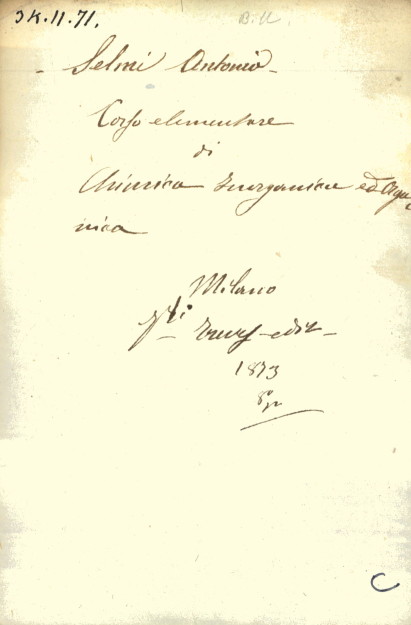 3K.11.71.
B.U.
- Selmi Antonio -
Corso elementare
di
Chimica Inorganica ed Orga
nica
Milano
F.lli Treves edit -
1873
8°
C